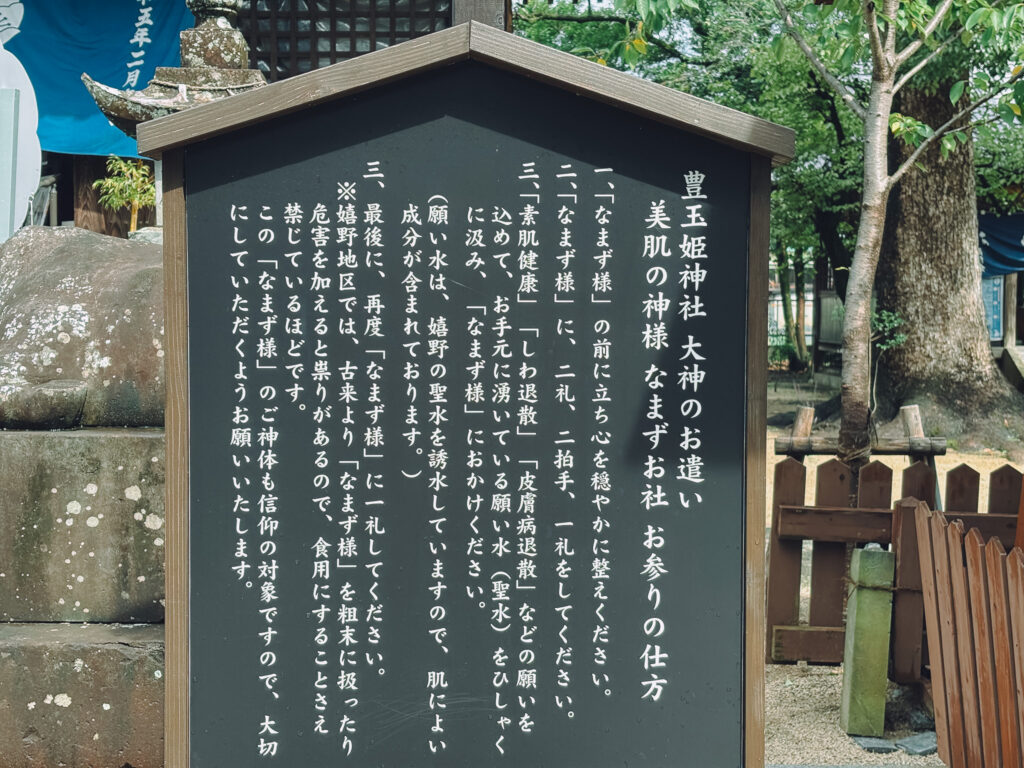 豊玉姫神社 大神のお遣い
美肌の神様 なまずお社 お参りの仕方
一、「なまず様」の前に立ち心を穏やかに整えください。
二、「なまず様」に、二礼、二拍手、一礼をしてください。
三、「素肌健康」「しわ退散」「皮膚病退散」などの願いを
込めて、お手元に湧いている願い水（聖水）をひしゃく
に汲み、「なまず様」におかけください。
（願い水は、嬉野の聖水を誘水していますので、肌によい
成分が含まれております。）
三、最後に、再度「なまず様」に一礼してください。
※嬉野地区では、古来より「なまず様」を粗末に扱ったり
危害を加えると祟りがあるので、食用にすることさえ
禁じているほどです。
この「なまず様」のご神体も信仰の対象ですので、大切
にしていただくようお願いいたします。
五年二月